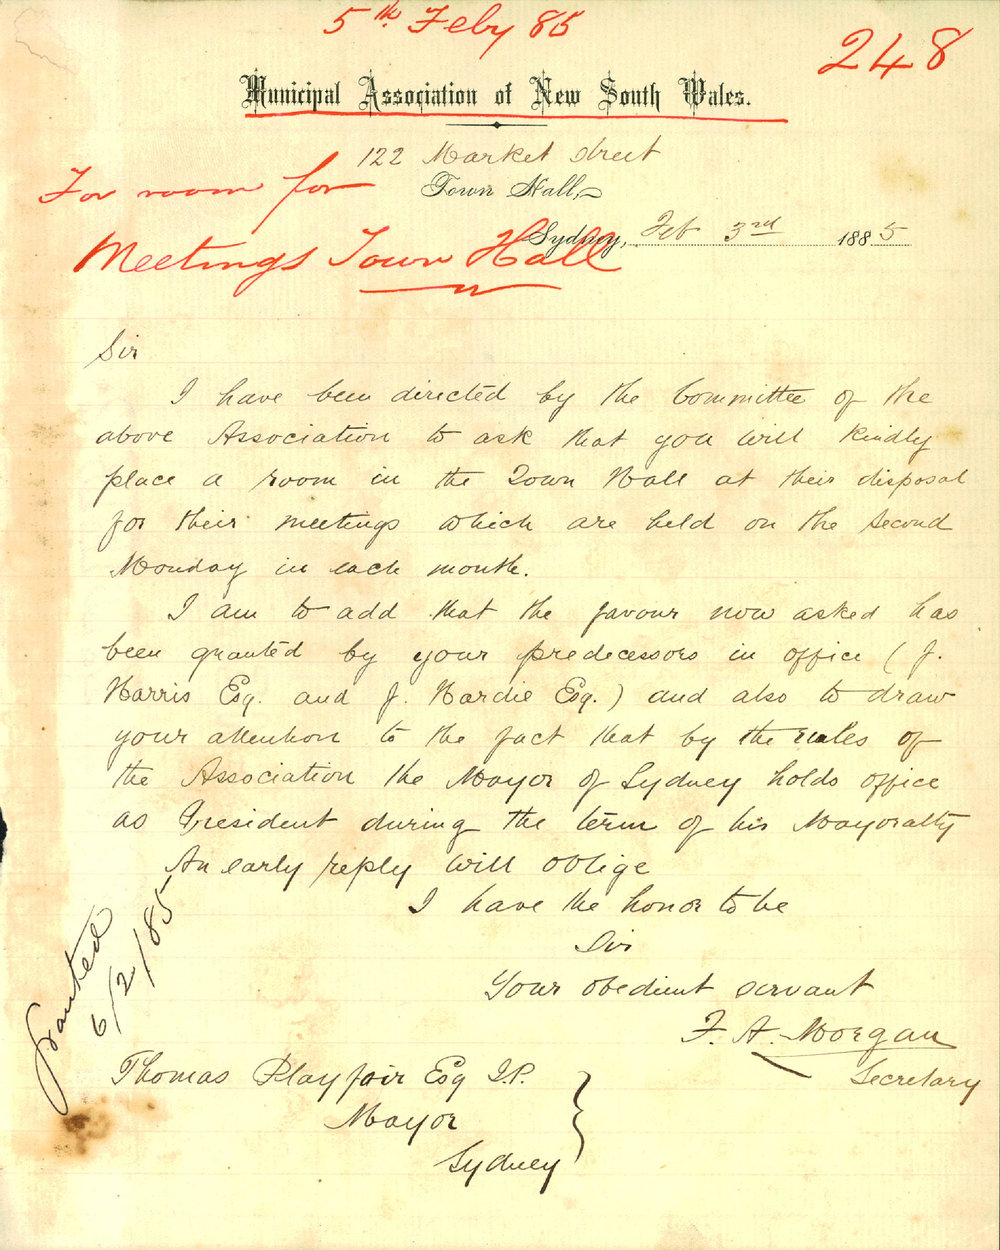 5th Feby 85
248
Municipal Association of New South Wales.
122 Market Street
For room for
Town Hall,
Sydney, Feb 3rd 1885
Meetings Town Hall
Sir
I have been directed by the Committee of the
above Association to ask that you will kindly
place a room in the Town Hall at their disposal
for their meetings which are held on the second
Monday in each month.
I am to add that the favour now asked has
been granted by your predecessors in office (J.
Harris Esq. and J. Hardie Esq.) and also to draw
your attention to the fact that by the rules of
the Association the Mayor of Sydney holds office
as President during the term of his Mayoralty
An early reply will oblige
I have the honor to be
Sir
Your obedient servant
F. A. Morgan
Secretary
Granted
6/2/85
Thomas Playfair Esq J.P.
Mayor
Sydney